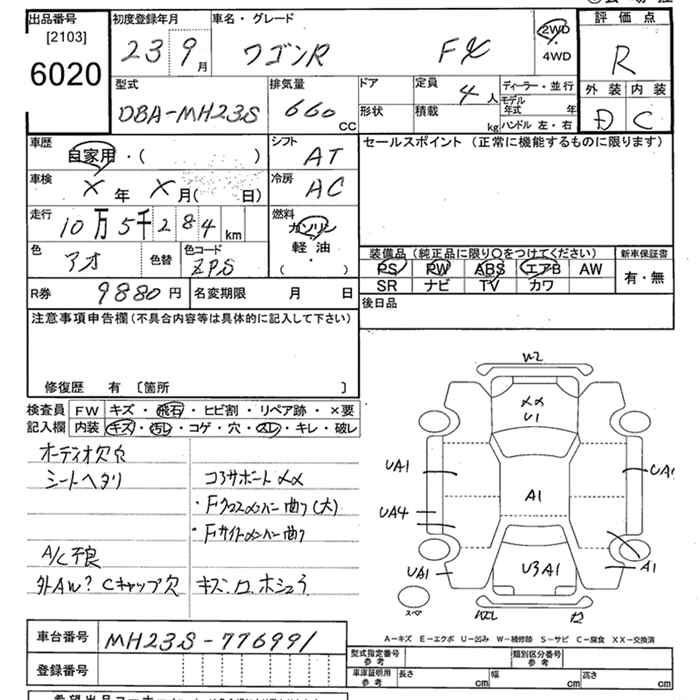 出品番号 初度登録年月 車名・グレード 2WD 評価点
[2103] 23 9月 ワゴンR FX 4WD R
6020
型式 排気量 ドア 定員 ディーラー・並行 外装 内装
DBA-MH23S 660 CC 形状 積載 4人 kg モデル年式 年 ハンドル 左・右 D C
車歴 シフト セールスポイント (正常に機能するものに限ります)
自家用・( ) AT
車検 冷房
X 年 X 月( 日) AC
走行 燃料
10万5千284km ガソリン
軽油
( )
色 色替 色コード 装備品 (純正品に限り○をつけてください) 新車保証書
アオ ZPS PS PW ABS エアB AW 有・無
SR ナビ TV カワ
R券 9880円 名変期限 月 日 後日品
注意事項申告欄 (不具合内容等は具体的に記入して下さい)
修復歴 有 〔箇所 〕
検査員 FW キズ・飛石・ヒビ割・リペア跡・×要
記入欄 内装 キズ・汚レ・コゲ・穴・スレ・キレ・破レ
オーディオ欠穴
シートヘタリ コアサポートメメ
・Fクロスメンバー曲り(大)
・Fサイドメンバー曲り
A/C不良
外AW? Cキャップ欠 キズ.
W2
XX
U1
UA1
UA1
A1
UA4
U3A1
UA1
A1
スペア
A-キズ E-エクボ U-凹み W-補修跡 S-サビ C-腐食 XX-交換済
車台番号 MH23S-776991
登録番号
型式指定番号 参考 類別区分番号 参考
車庫証明用 参考 長さ cm 幅 cm 高さ cm